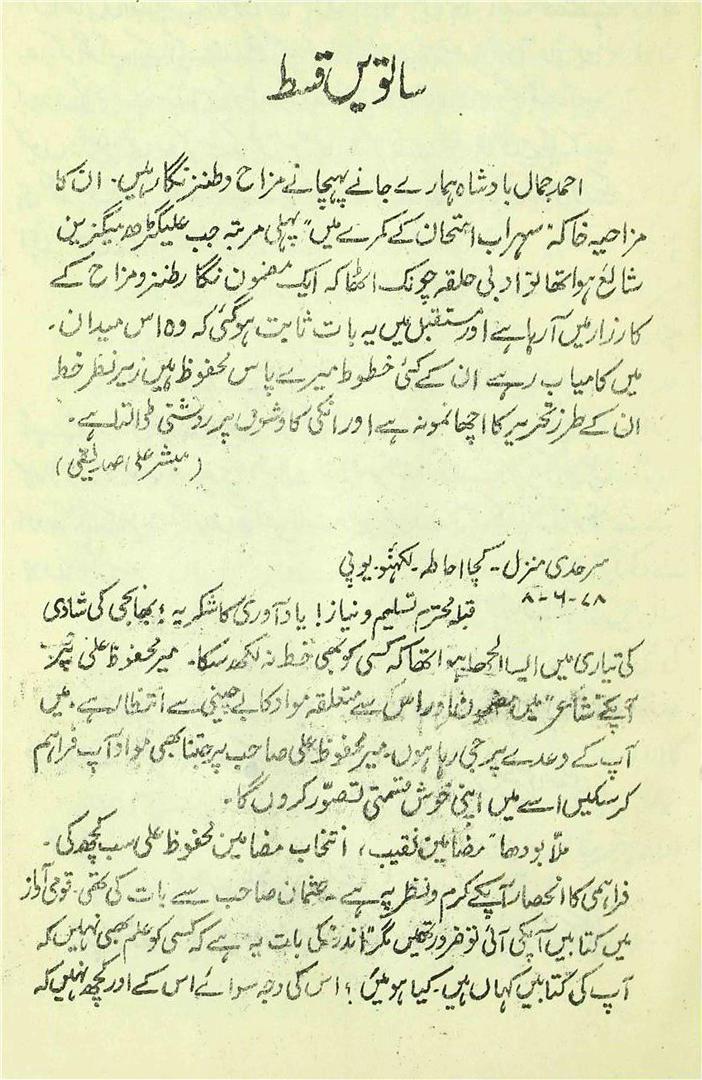 ساتویں قسط
احمد جمال بادشاہ ہمارے جانے پہچانے مزاح و طنز نگار ہیں۔ ان کا
مزاحیہ خاکہ "سہراب امتحان کے کمرے میں" پہلی مرتبہ جب علیگڑھ میگزین
شائع ہوا تھا تو ادبی حلقہ چونک اٹھا کہ ایک مضمون نگار طنز و مزاح کے
کارزار میں آ رہا ہے اور مستقبل میں یہ بات ثابت ہو گئی کہ وہ اس میدان۔
میں کامیاب رہے ان کے کئی خطوط میرے پاس محفوظ ہیں زیر نظر خط
ان کے طرز تحریر کا اچھا نمونہ ہے اور انکی کاوشوں پر روشنی ڈالتا ہے۔
(مبشر علی صدیقی)
سرحدی منزل۔ کچا احاطہ۔ لکھنؤ۔ یوپی
۸-۶-۷۸
قبلہ محترم تسلیم و نیاز! یاد آوری کا شکریہ! بھانجی کی شادی
کی تیاری میں ایسا الجھا ہوا تھا کہ کسی کو بھی خط نہ لکھ سکا۔ میر محفوظ علی پر
آپکے "شاعر" میں مضمون اور اس سے متعلقہ مواد کا بے چینی سے انتظار ہے۔ میں
آپ کے وعدے پر جی رہا ہوں۔ میر محفوظ علی صاحب پر جتنا بھی مواد آپ فراہم
کر سکیں اسے میں اپنی خوش قسمتی تصور کروں گا۔
ملا بودھا" مضامین نقیب، انتخاب مضامین محفوظ علی سب کچھ کی۔
فراہمی کا انحصار آپکے کرم و نظر پہ ہے۔ عثمان صاحب سے بات کی تھی۔ قومی آواز
میں کتابیں آپکی آئی تو ضرور تھیں مگر اندر کی بات یہ ہے کہ کسی کو علم بھی نہیں کہ
آپ کی کتابیں کہاں ہیں۔ کیا ہوئیں؟ اس کی وجہ سوائے اس کے اور کچھ نہیں کہ